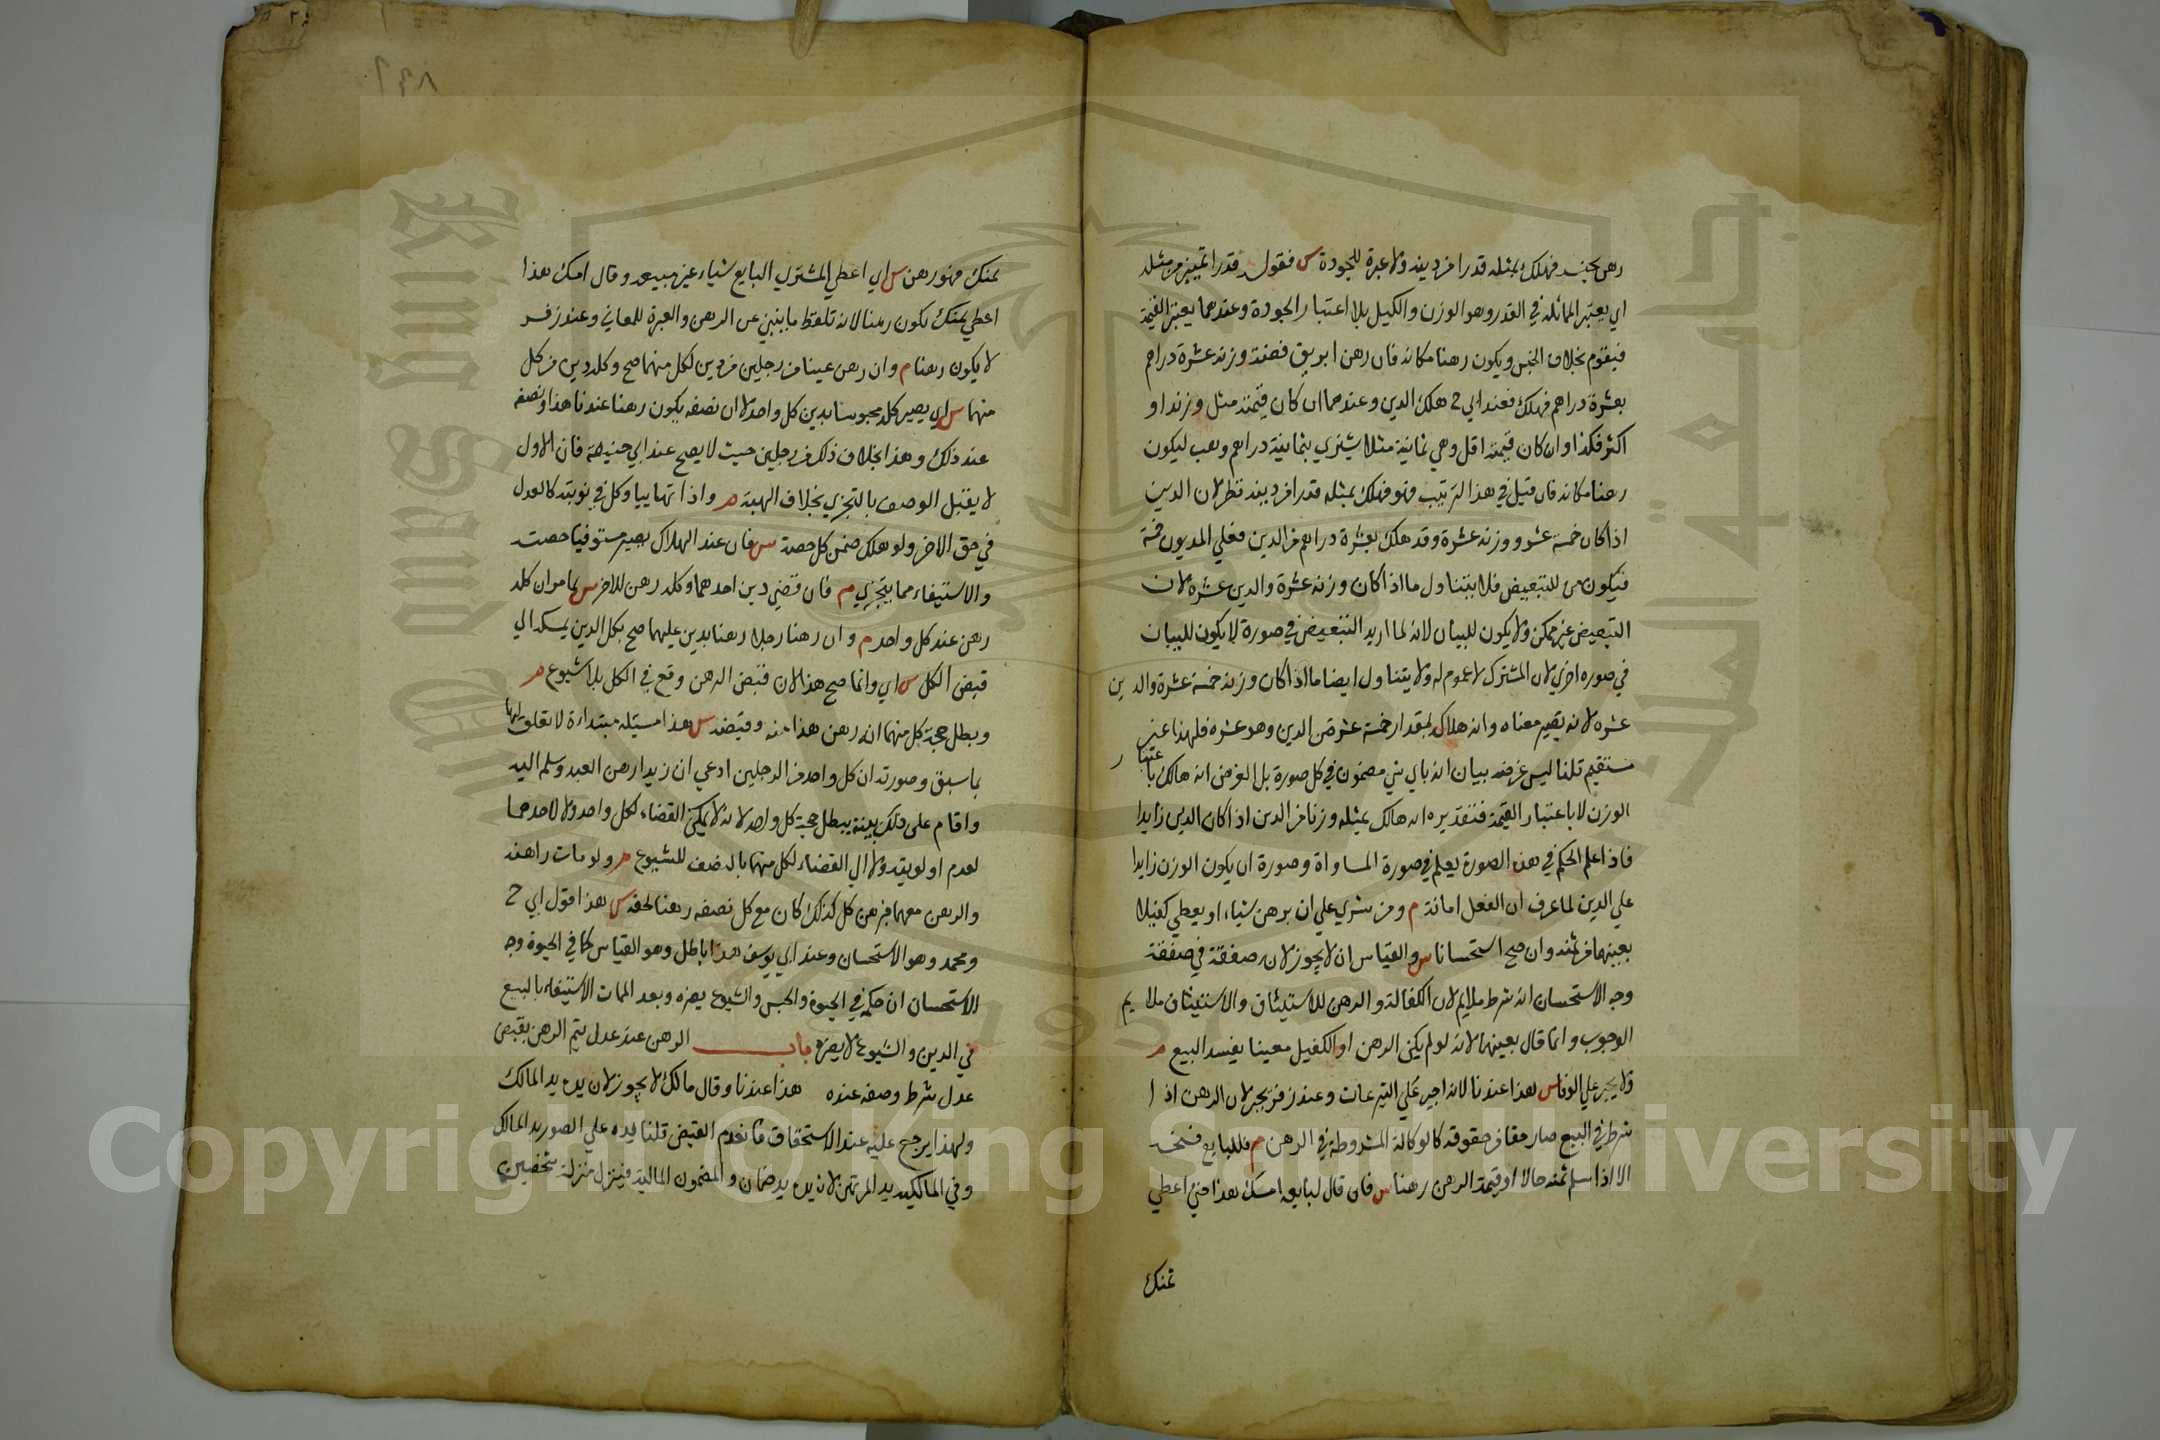 رهن بجنسه فهلك بمثله قدرا من دينه ولا عبرة للجودة س فقوله قدرا تمييز من مثله
اي يعتبر المماثلة في القدر وهو الوزن والكيل بلا اعتبار الجودة وعندهما يعتبر القيمة
فيقوم بخلاف الجنس ويكون رهنا مكانه فان رهن ابريق فضة وزنه عشرة دراهم
بعشرة دراهم فهلك فعند ابي ح هلك الدين وعندهما ان كان قيمته مثل وزنه او
اكثر فكذا وان كان قيمته اقل وهي ثمانية مثلا يشتري بثمانية دراهم وهب ليكون
رهنا مكانه فان قيل في هذا الترتيب فهو فهلك بمثله قدرا من دينه نظر لان الدين
اذا كان خمسة عشر ووزنه عشرة وقد هلك بعشرة دراهم من الدين فعلي المديون خمسة
فيكون من للتبعيض فلا يتناول ما اذا كان وزنه عشرة والدين عشره لان
التبعيض غير ممكن ولا يكون للبيان لانه لما اريد التبعيض في صورة لا يكون للبيان
في صوره اخري لان المشترك لا عموم له ولا يتناول ايضا ما اذا كان وزنه خمسة عشرة والدين
عشره لانه يصير معناه وانه هلاك بمقدار خمسة عشر من الدين وهو عشره فلهذا غير
مستقيم قلنا ليس غرضه بيان انه باي شي مضمون في كل صورة بل الغرض انه هالك باعتبار
الوزن لا باعتبار القيمة فتقديره انه هالك بمثله وزنا من الدين اذا كان الدين زايدا
فاذا علم الحكم في هذه الصورة يعلم في صورة المساواة وصورة ان يكون الوزن زايدا
علي الدين لما عرف ان الفضل امانة م ومن شري علي ان يرهن شيا، او يعطي كفيلا
بعينهما من ثمنه وان صح استحسانا س والقياس ان لا يجوز لانه صفقة في صفقة
وجه الاستحسان انه شرط ملايم لان الكفالة والرهن للاستيثاق والاستيثاق ملايم
الوجوب وانما قال بعينهما لانه لو لم يكن الرهن او الكفيل معينا يفسد البيع م
ولا يجبر علي الوفا س هذا عندنا لانه اجبر علي التبرعات وعند زفر يجبر لان الرهن اذا
شرط في البيع صار حقا من حقوقه كالوكالة المشروطة في الرهن م فللبايع فسخه
الا اذا سلم ثمنه حالا او قيمة الرهن رهنا س فان قال لبايعه امسك هذا حتي اعطي
ثمنك
٨٩٩
ثمنك فهو رهن س اي اعطي المشتري البايع شياء غير مبيعه وقال امسك هذا
اعطي ثمنك يكون رهنا لانه تلفظ ما ينبئ عن الرهن والعبرة للمعاني وعند زفر
لا يكون رهنا م وان رهن عينا من رجلين من دين لكل منهما صح وكله دين من كل
منهما س اي يصير كله محبوسا بدين كل واحد لا ان نصفه يكون رهنا عند هذا ونصفه
عند ذلك وهذا بخلاف ذلك من رجلين حيث لا يصح عند ابي حنيفة فان الاول
لا يقبل الوصف بالتجزي بخلاف الهبة م واذا تهاييا وكل في نوبته كالعدل
في حق الاخر ولو هلك ضمن كل حصة س فان عند الهلاك يصير مستوفيا حصته
والاستيفاء مما يتجزي م فان قضي دين احدهما وكله رهن للاخر س لما مر ان كله
رهن عند كل واحد م وان رهنا رجلا رهنا بدين عليهما صح بكل الدين يمسكه الي
قبض الكل س اي وانما صح هذا لان قبض الرهن وقع في الكل بلا شيوع م
وبطل حجة كل منهما انه رهن هذا منه وقبضه س هذا مسئلة مبتداءة لا تعلق لها
بما سبق وصورته ان كل واحد من الرجلين ادعي ان زيدا رهن العبد وسلم اليه
واقام علي ذلك بينة يبطل حجة كل واحد لانه لا يمكن القضاء لكل واحد ولا لاحدهما
لعدم اولويته ولا الي القضاء لكل منهما بالنصف للشيوع م ولو مات راهنه
والرهن معهما فبرهن كل كذلك كان مع كل نصفه رهنا لحقه س هذا قول ابي ح
ومحمد وهو الاستحسان وعند ابي يوسف هذا باطل وهو القياس كما في الحيوة وجه
الاستحسان ان حكمه في الحيوة والحبس والشيوع يضره وبعد الممات الاستيفاء بالبيع
في الدين والشيوع لا يضره باب الرهن عند عدل يتم الرهن بقبض
عدل شرط وضعه عنده هذا عندنا وقال مالك لا يجوز لان يده يد المالك
ولهذا يرجع عليه عند الاستحقاق فانعدم القبض قلنا يده علي الصوريد المالك
وفي المالكيه يد المرتهن لان يده يد ضمان والمضمون المالية فينزل منزلة شخصين